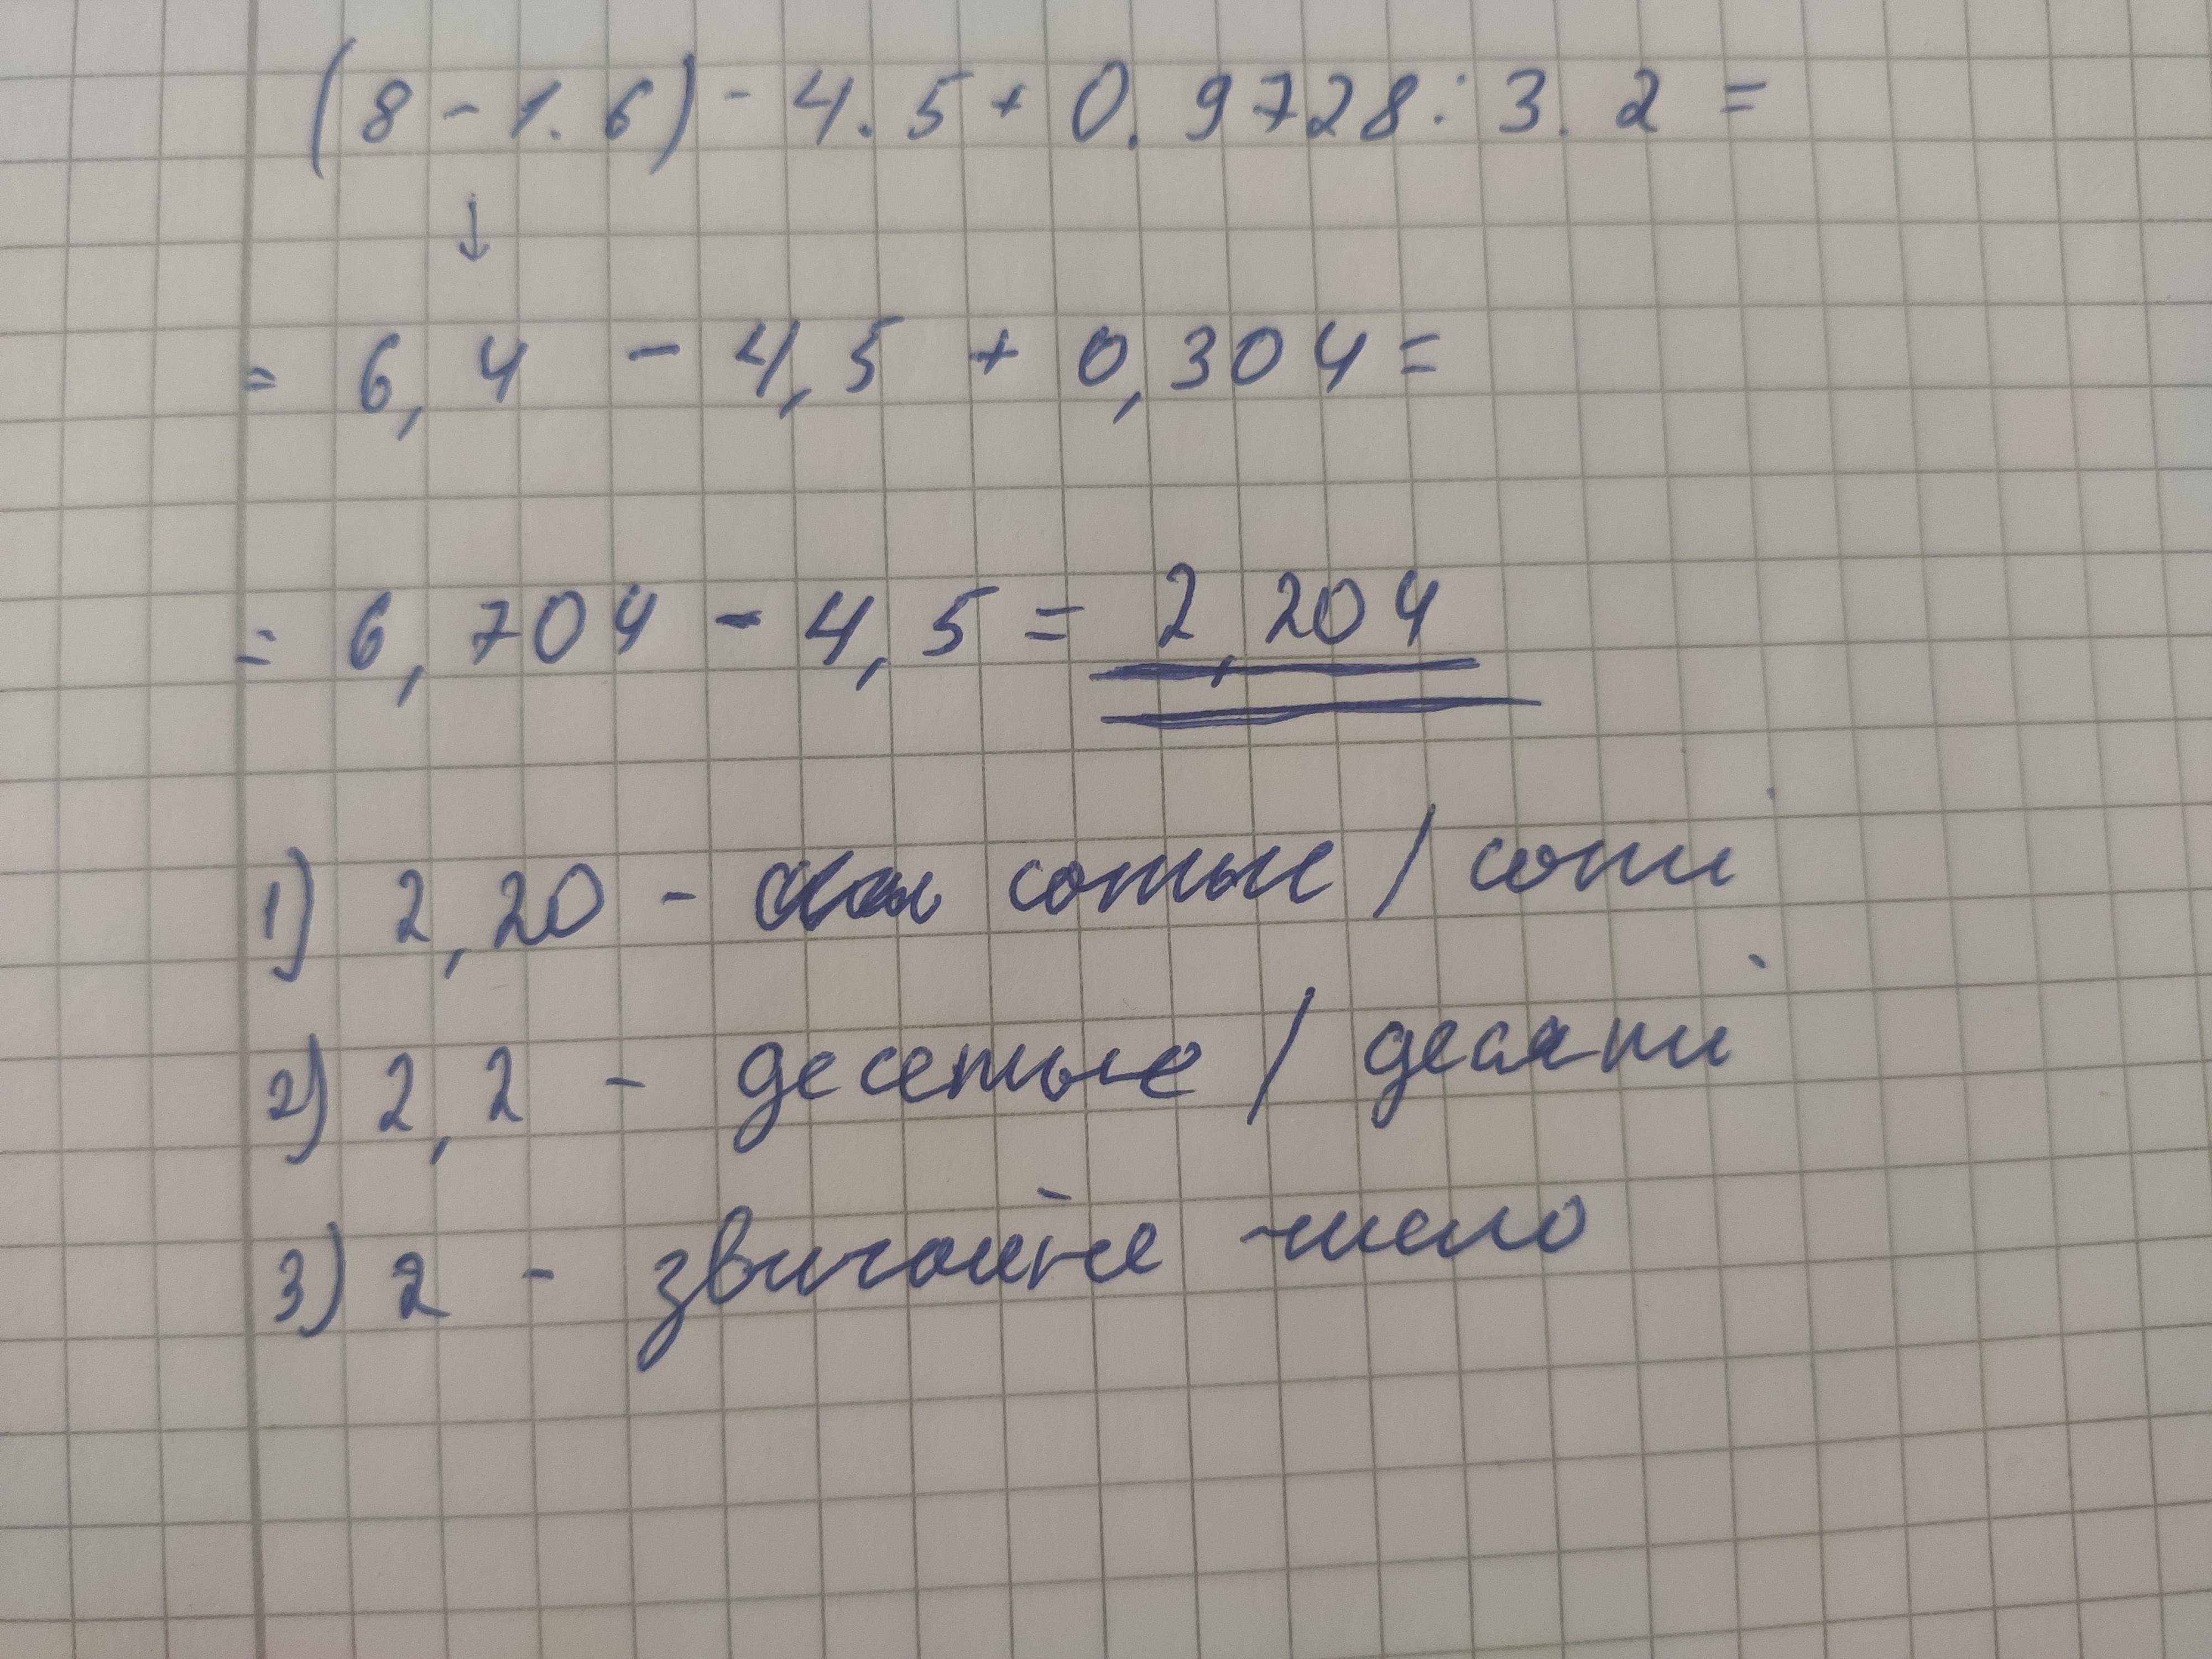 (8 - 1.6) - 4.5 + 0.9728 : 3.2 =
↓
= 6,4 - 4,5 + 0,304 =
= 6,704 - 4,5 = 2,204
1) 2,20 - сотые / соті
2) 2,2 - десетые / десяті
3) 2 - звичайне число